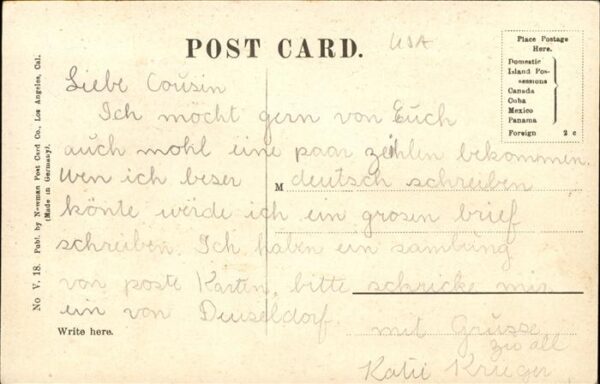 POST CARD.
USA
Place Postage
Here.
Domestic
Island Pos-
sessions
Canada
Cuba
Mexico
Panama
Foreign 2 c
No V. 18. Publ. by Newman Post Card Co., Los Angeles, Cal.
(Made in Germany).
Liebe Cousin
Ich möcht gern von Euch
auch mohl eine paar zeihlen bekommen.
Wen ich beser M deutsch schreiben
könte würde ich ein grosen brief
schreiben. Ich haben ein sambung
von poste Karten, bitte schricke mir
ein von Deuseldorf
Write here.
mit Grüsse
zu all
Katie Krieger